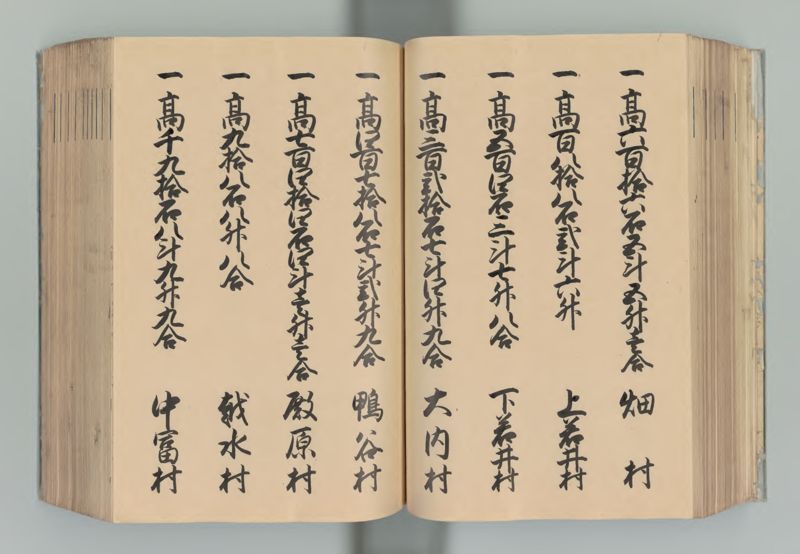 一高六百拾六石五斗五升壱合 畑村
一高百八拾八石弐斗六升 上若井村
一高五百四石二斗七升八合 下若井村
一高三百弐拾石七斗四升九合 大内村
一高四百七拾八石七斗弐升九合 鴨谷村
一高七百四拾四石四斗壱升壱合 殿原村
一高九拾八石八升八合 戟水村
一高千九拾石八斗九升九合 中富村